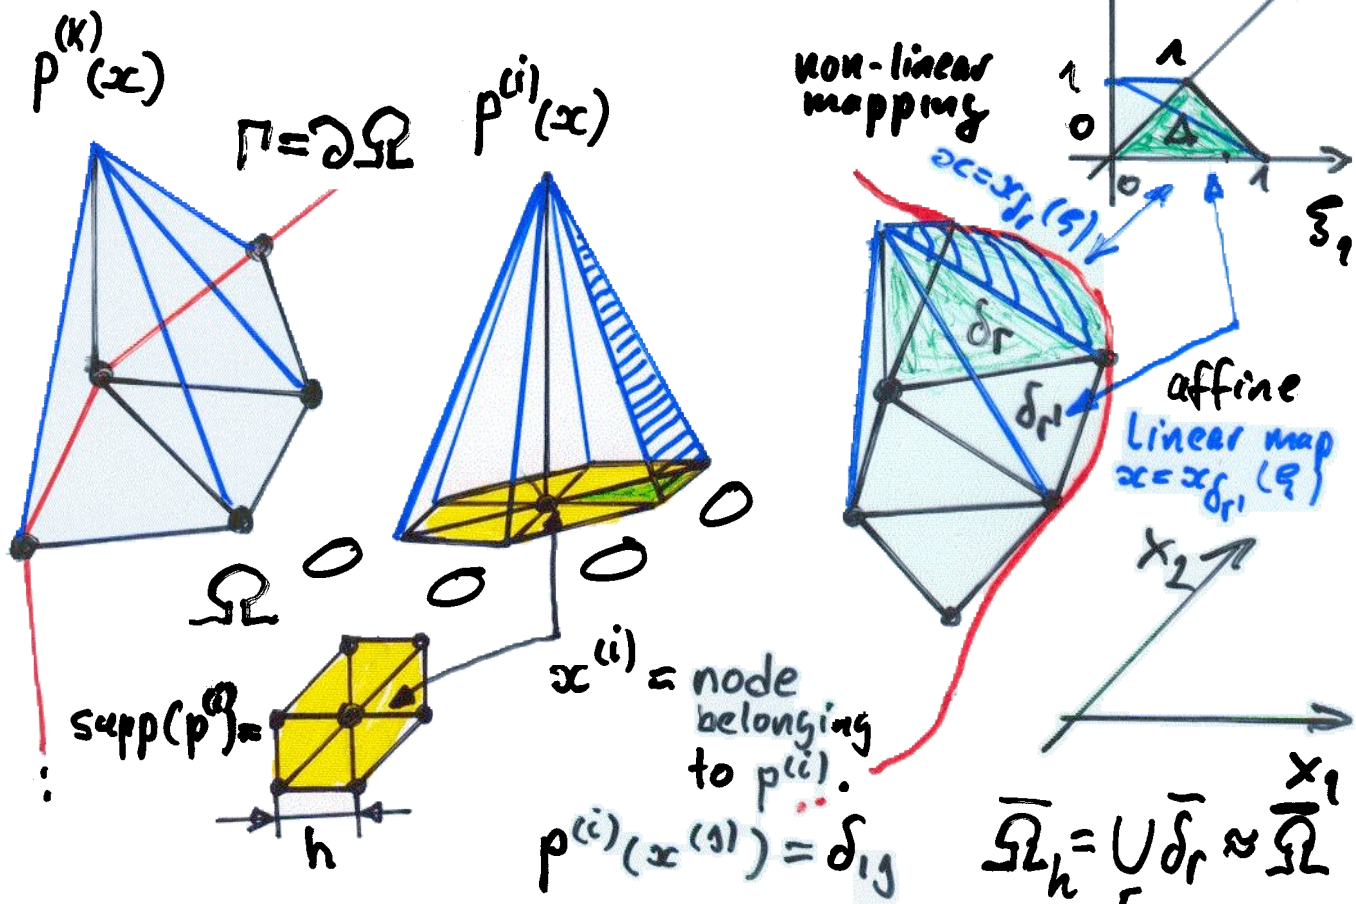 p^(k)(x)
Γ=∂Ω
p^(i)(x)
non-linear
mapping
x=x_δr(ξ)
1
1
0
Δ
0
1
ξ_1
δ_r
δ_r'
affine
Linear map
x=x_δr'(ξ)
Ω
0
0
0
0
x_2
x_1
supp(p^(i))=
h
x^(i) = node
belonging
to p^(i).
p^(i)(x^(j)) = δ_ij
Ω̅_h = ∪_r δ̅_r ≈ Ω̅